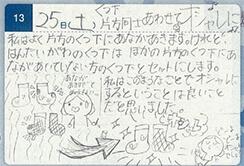 13
25日(土)
くつ下
片方同士あわせてオシャレに
私はよく片方のくつ下にあながあきます。
はんたいがわのくつ下は ほかの片方のくつ下にあ
ながあいていない方のくつ下とセットにします。
私はこのようなことでオシャレに
するということは良いこと
だと思いました。